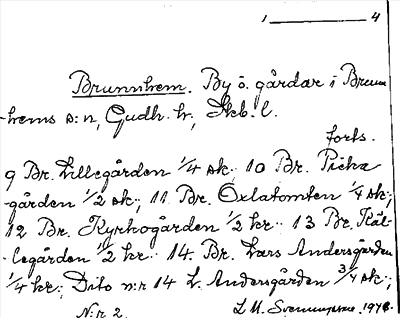 1 ———— 4
Brunnhem. By o. gårdar i Brunn-
-hems s:n, Gudh. hr, Skb. l.
forts.
9 Br. Lillegården 1/4 sk.; 10 Br. Picka
-gården 1/2 sk.; 11 Br. Oxlatomten 1/4 sk.;
12 Br. Kyrkogården 1/2 kr.; 13 Br. Käl-
-legården 1/2 kr.; 14. Br. Lars Andersgården
1/4 kr.; Dito n:r 14 L. Andersgården 3/4 sk.;
N:r 2. L M. 1948.